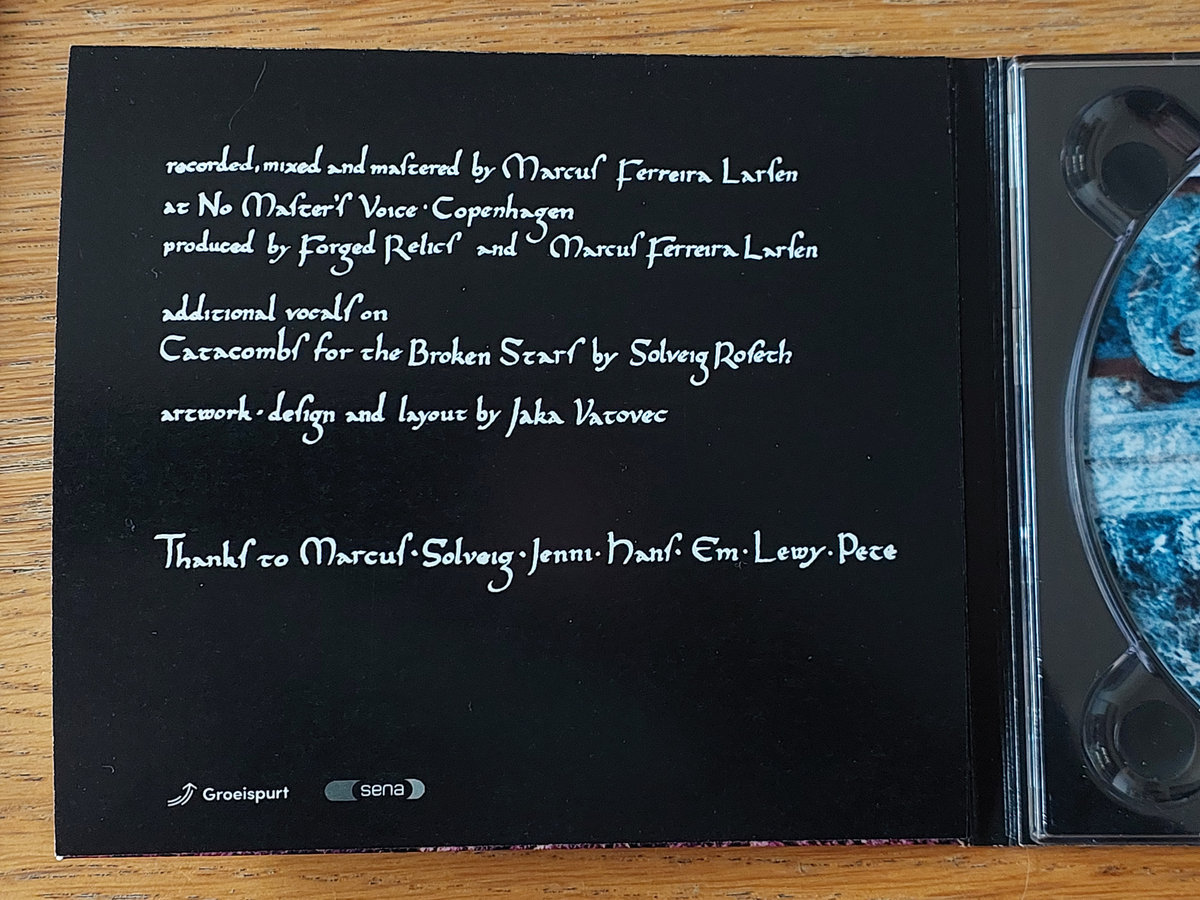 recorded, mixed and mastered by Marcus Ferreira Larsen
at No Master's Voice · Copenhagen
produced by Forged Relics and Marcus Ferreira Larsen
additional vocals on
Catacombs for the Broken Stars by Solveig Roseth
artwork · design and layout by Jaka Vatovec
Thanks to Marcus · Solveig · Jenni · Hans · Em · Lewy · Pete
Groeispurt
sena